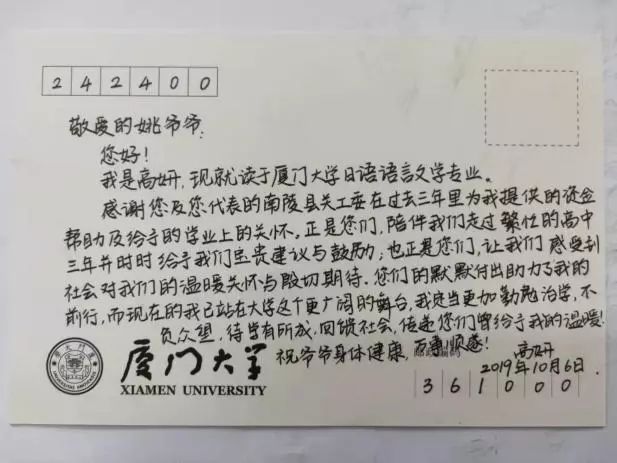 242400
敬爱的姚爷爷：
您好！
我是高妍，现就读于厦门大学日语语言文学专业。
感谢您及您代表的南陵县关工委在过去三年里为我提供的资金
帮助及给予的学业上的关怀。正是您们，陪伴我们走过繁忙的高中
三年并时时给予我们宝贵建议与鼓励；也正是您们，让我们感受到
社会对我们的温暖关怀与殷切期待。您们的默默付出助力了我的
前行，而现在的我已站在大学这个更广阔的舞台，我定当更加勤勉治学，不
负众望，待学有所成，回馈社会，传递您们曾给予我的温暖！
祝爷爷身体健康，万事顺遂！
高妍
2019年10月6日
厦门大学
XIAMEN UNIVERSITY
邮政编码
361000